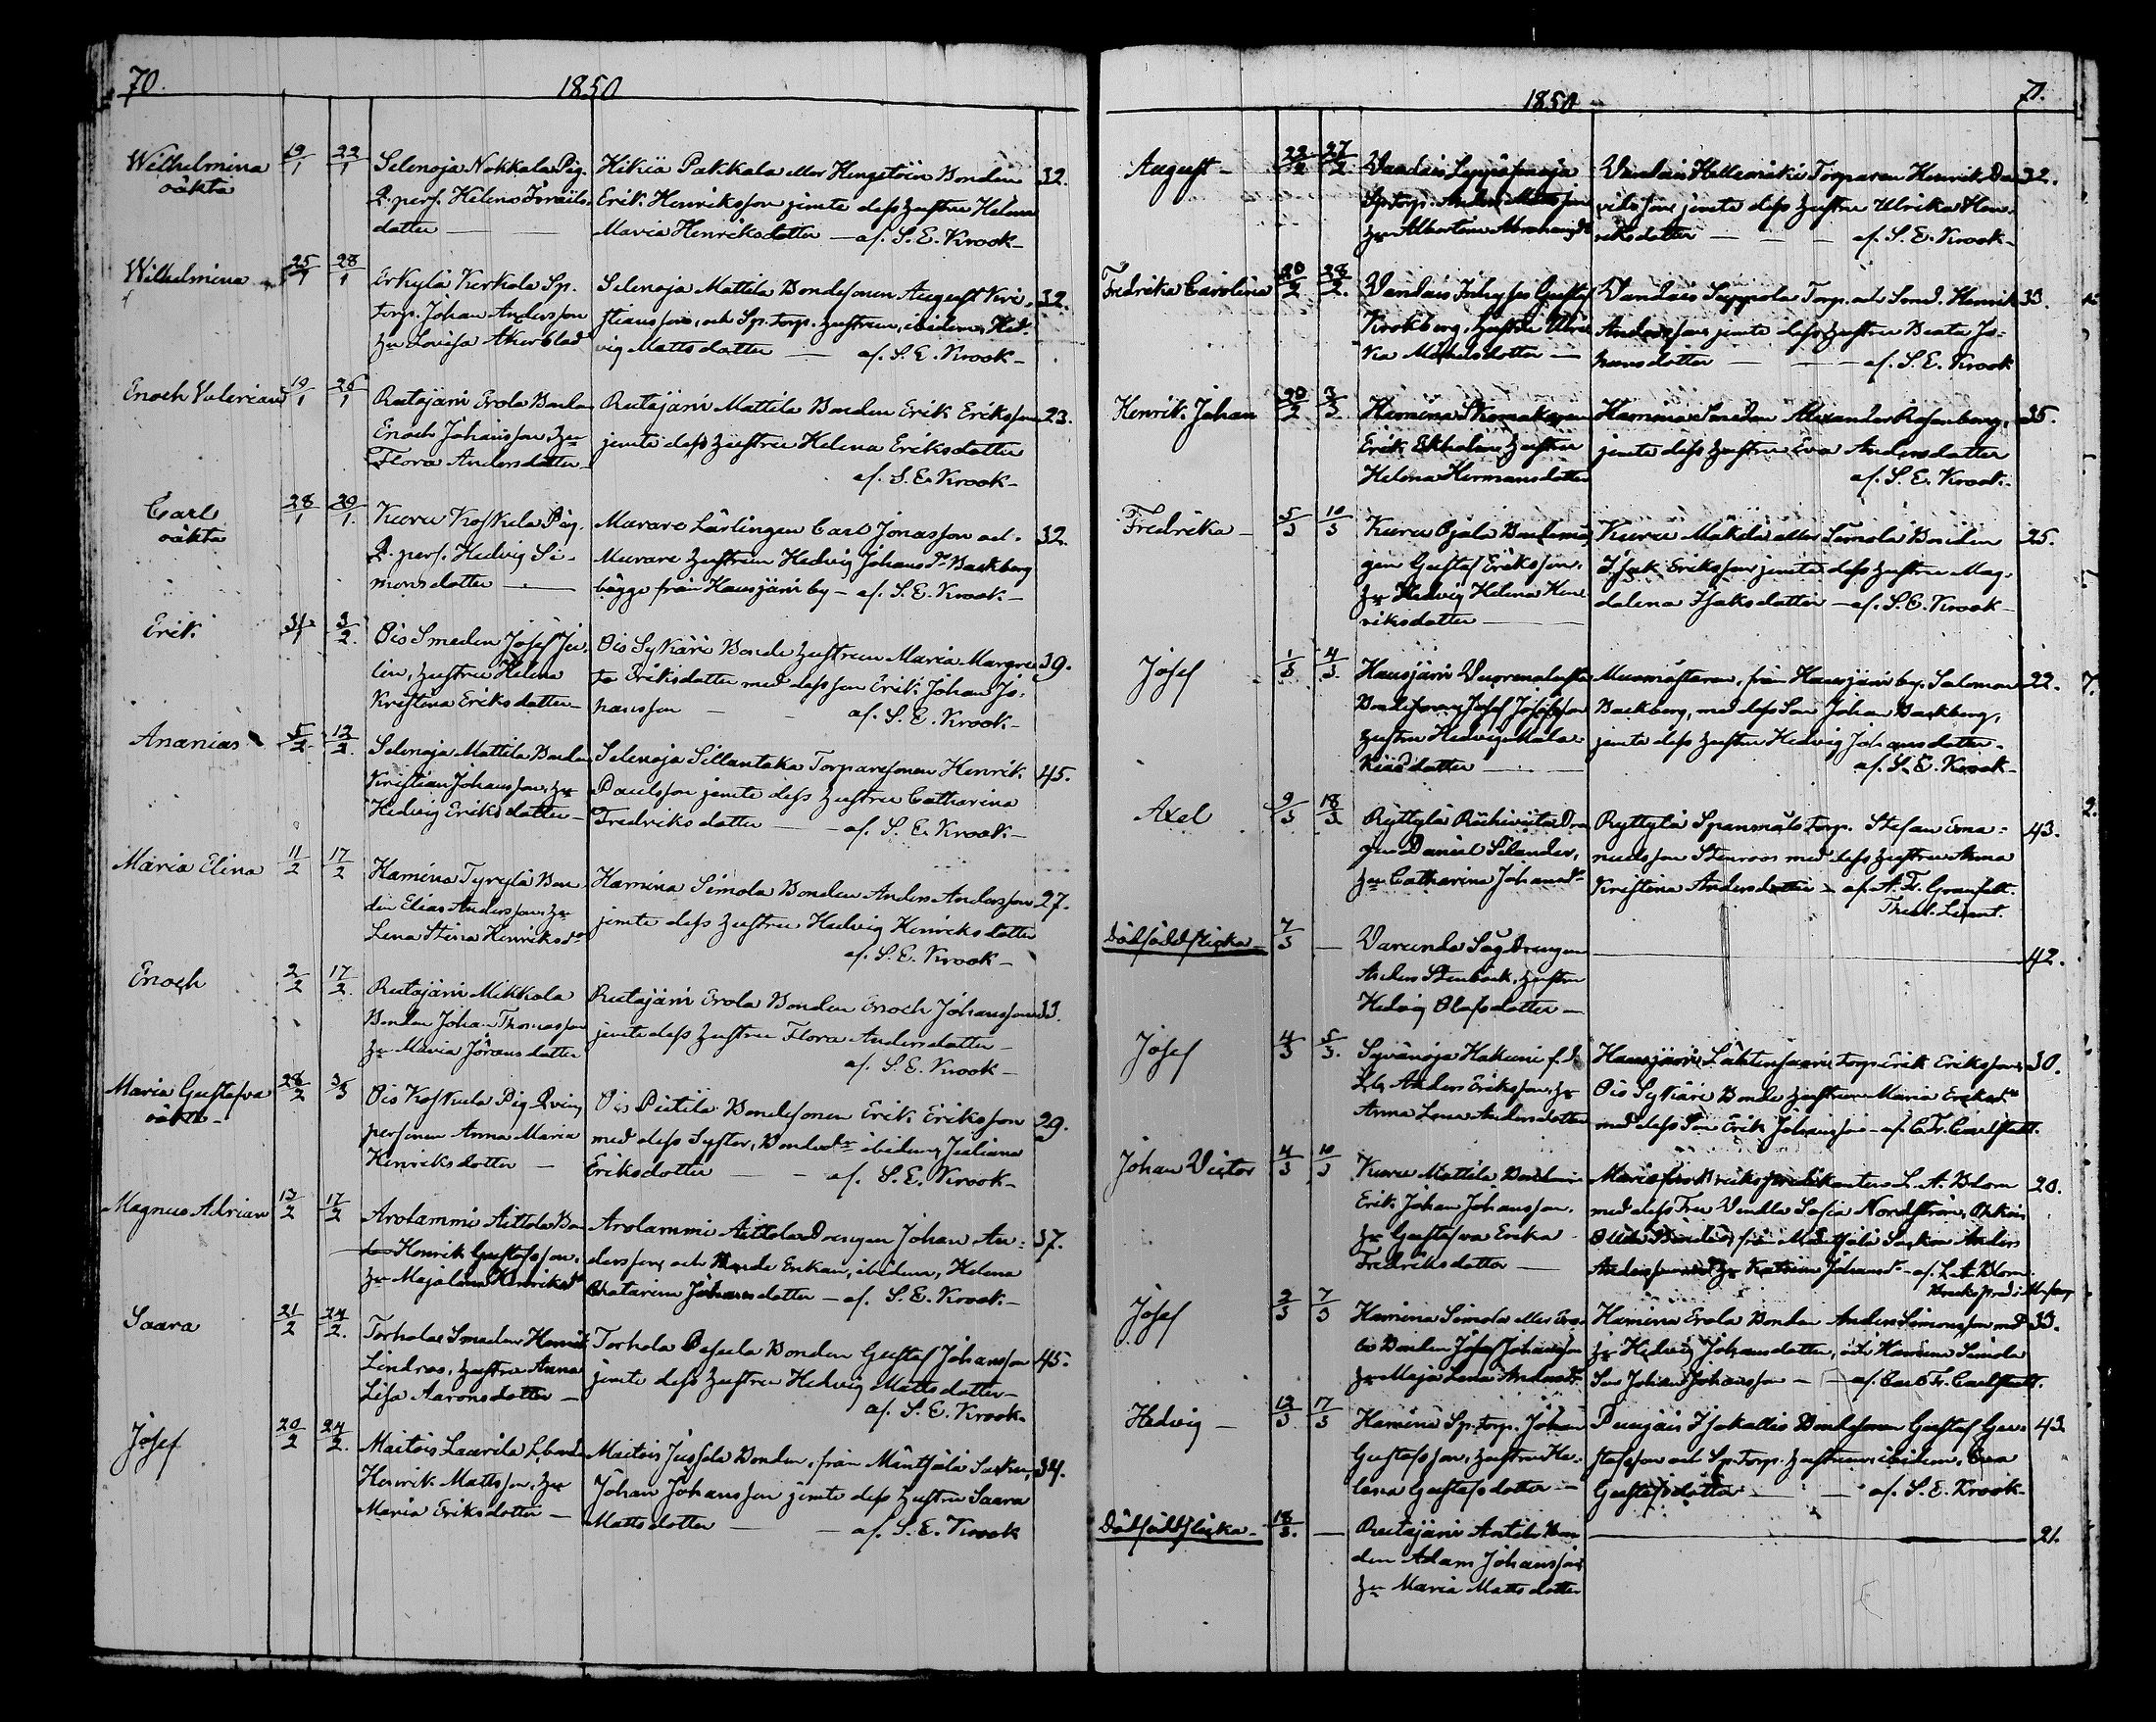 70. 1850
Wilhelmina 19/1 22/1 Selenoja Nokkala Pig. Hikiä Pakkala eller Hengstöin Bonden 32.
oäkta Q. pers. Helena Israels Erik Henriksson jemte dess hustru Helena
dotter — Maria Henriksdotter — af. S. E. Krook —
Wilhelmina 25/1 28/1 Erkylä Kerkola Sp. Selenoja Mattila Bondesonen August Kri- 32.
torp. Johan Andersson stiansson, och Sp. torp. hustrun, ibidem, Hed-
hu Lovisa Åkerblad vig Mattsdotter — af. S. E. Krook —
Enoch Valerian 19/1 26/1 Rutajärvi Erola Bonden Rutajärvi Mattila Bonden Erik Eriksson 23.
Enoch Johansson, hu jemte dess hustru Helena Eriksdotter
Flora Andersdotter — af. S. E. Krook —
Carl 28/1 29/1. Kuru Koskela Pig. Murare Lärlingen Carl Jonasson och 32.
oäkta Q. pers. Hedvig Si- Murare hustrun Hedvig Johansdr Backberg
monsdotter — bägge från Hausjärvi by — af. S. E. Krook —
Erik 31/1 3/2. Ois Smeden Josef Ju- Ois Sykäri Bonde hustrun Maria Margre- 39.
lin, hustru Helena ta Eriksdotter med dess son Erik Johan Jo-
Kristina Eriksdotter — hansson — af. S. E. Krook —
Ananias 5/2 12/2. Selenoja Mattila Bonden Selenoja Sillantaka Torparesonen Henrik 45.
Kristian Johansson, hu Paulsson jemte dess hustru Catharina
Hedvig Eriksdotter — Fredriksdotter — af. S. E. Krook —
Maria Elina 11/2 17/2 Hamina Tyrylä Bon- Hamina Simola Bonden Anders Andersson 27.
den Elias Andersson, hu jemte dess hustru Hedvig Henriksdotter
Lena Stina Henriksdr af. S. E. Krook —
Enoch 2/2 17/2. Rutajärvi Mikkola Rutajärvi Erola Bonden Enoch Johansson 33.
Bonden Johan Thomasson jemte dess hustru Flora Andersdotter —
hu Maria Jöransdotter af. S. E. Krook —
Maria Gustafva 28/2 3/3 Ois Koskela Pig Qvins Ois Pietilä Bondesonen Erik Eriksson 29.
oäkta — personen Anna Maria med dess Syster, Bondedr ibidem, Juliana
Henriksdotter — Eriksdotter — af. S. E. Krook —
Magnus Adrian 13/2 17/2 Arolammi Aittola Bon- Arolammi Aittola Drengen Johan An- 37.
den Henrik Gustafsson, dersson, och Bonde Enkan, ibidem, Helena
hu Maja Lena Henriksdr Chatarina Johansdotter — af. S. E. Krook —
Saara 21/2 24/2. Torhola Smeden Henrik Torhola Pesula Bonden Gustaf Johansson 45.
Lindros, hustru Anna jemte dess hustru Hedvig Mattsdotter —
Lisa Aaronsdotter — af. S. E. Krook.
Josef 20/2 24/2. Maitois Laurila Lbonden Maitois Jussila Bonden, från Mäntsälä Socken, 34.
Henrik Mattsson, hu Johan Johansson jemte dess hustru Saara
Maria Eriksdotter — Mattsdotter — af. S. E. Krook
1850 71.
August — 22/2 27/2. Vandais Torparen Henrik Da- 32.
Sp. torp. Anders Mattsson vidsson jemte dess hustru Ulrika Hen-
hu Albertina Abrahamsdr riksdotter — af. S. E. Krook —
Fredrika Carolina 20/2 28/2. Vandais Inhyses Gustaf Vandais Seppola Torp. och Smed. Henrik 33.
Krokberg, hustru Ulri- Andersson jemte dess hustru Beata Jo-
ka Michelsdotter — hansdotter — af. S. E. Krook
Henrik Johan 20/2 3/3 Hamina Skomakaren Hamina Smeden Alexander Rosenberg, 35.
Erik Ekholm hustru jemte dess hustru Eva Andersdotter
Helena Hermansdotter af. S. E. Krook —
Fredrika — 5/3 10/3 Kuru Ojala Kuru Mäkelä eller Simola Bonden 25.
Gustaf Eriksson, Isak Eriksson jemte dess hustru Mag-
hu Hedvig Helena Hen- dalena Isaksdotter — af. S. E. Krook —
riksdotter —
Josef 1/3 4/3. Hausjärvi från Hausjärvi by, Salomon 22.
Bondesonen Josef Josefsson Backberg, med dess Son Johan Backberg,
hustru Hedvig Mala- jemte dess hustru Hedvig Johansdotter —
kiasdotter — af. S. E. Krook —
Axel 9/3 18/3. Ryttylä Dren- Ryttylä Spanmåls torp. Stefan Ema- 43.
gen Daniel Silander, nuelsson Stenroos med dess hustru Anna
hu Catharina Johansdr Kristina Andersdotter — af A. Fr. Granfelt.
Theol. Licent.
Dödfödd flicka 7/3 — Varunda Såg Drengen 42.
Anders Stenback, hustru
Hedvig Olofsdotter —
Josef 4/3 5/3. Syvänoja Hakuni f.d. Hausjärvi torp Erik Eriksson, 30.
Anders Eriksson, hu Ois Sykäri Bonde hustrun Maria Eriksdr
Anna Lena Andersdotter med dess Son Erik Johansson — af C. Fr. Carlstedt.
Johan Victor 4/3 10/3 Kuru Mattila Mariefors Brukspredikanten L. A. Blom 20.
Erik Johan Johansson, med dess Fru Vendla Sofia Nordström,
hu Gustafva Erika från Mäntsälä Socken Anders
Fredriksdotter — Andersson hu Katrina Johansdr — af. L. A. Blom.
Bruks pred:
Josef 2/3 7/3 Hamina Simola eller Ero- Hamina Erola Bonden Anders Simonsson med 33.
la Bonden Josef Johansson hu Hedvig Johansdotter, och Hamina Simola
hu Maja Lena Andersdr Son Johan Johansson — af. Carl Fr. Carlstedt.
Hedvig — 12/3 17/3 Hamina Sp. torp. Johan Puujais Isokallio Bondesonen Gustaf Gu- 43.
Gustafsson, hustru He- stafsson och Sp. Torp. hustrun, ibidem, Eva
lena Gustafsdotter — Gustafsdotter — af. S. E. Krook —
Dödfödd flicka — 18/3. — Rutajärvi Anttila Bon- 21.
den Adam Johansson,
hu Maria Mattsdotter